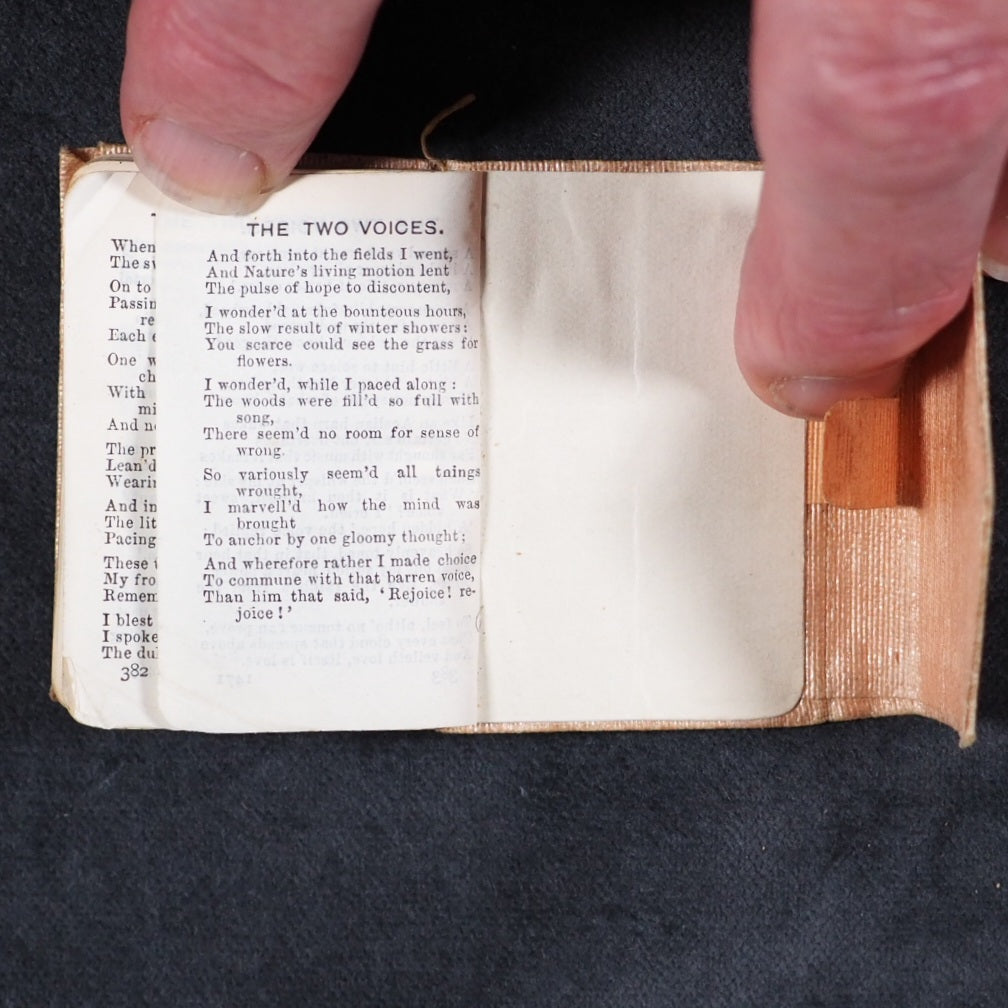 When
The
On to
Passin
re
Each
One
ch
With
mi
And
The pr
Lean'd
Wearin
And in
The lit
Pacing
These
My fro
Remem
I blest
I spoke
The du
382
THE TWO VOICES.
And forth into the fields I went,
And Nature's living motion lent
The pulse of hope to discontent,
I wonder'd at the bounteous hours,
The slow result of winter showers:
You scarce could see the grass for
flowers.
I wonder'd, while I paced along:
The woods were fill'd so full with
song,
There seem'd no room for sense of
wrong.
So variously seem'd all things
wrought,
I marvell'd how the mind was
brought
To anchor by one gloomy thought;
And wherefore rather I made choice
To commune with that barren voice,
Than him that said, 'Rejoice! re-
joice!'